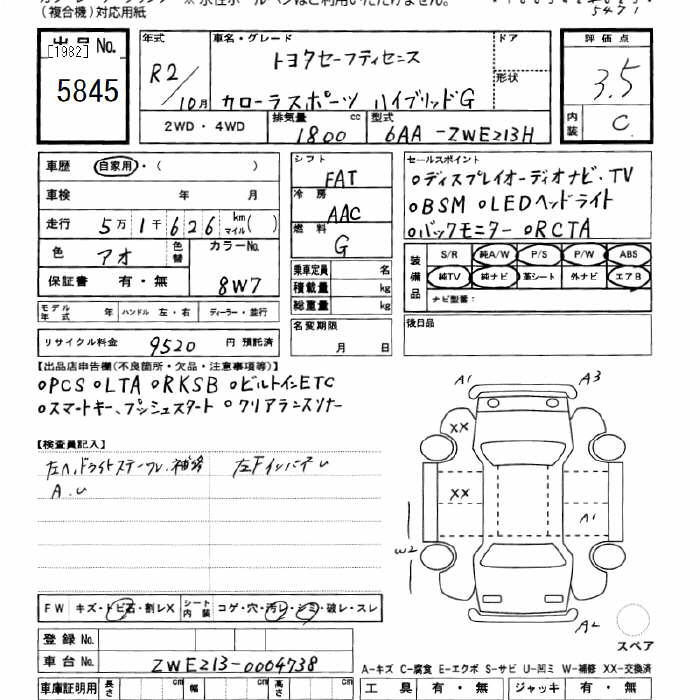 (複合機)対応用紙
5471
出品 No.
[1982]
5845
年式
R2/10月
車名・グレード
トヨタセーフティセンス
カローラスポーツ ハイブリッドG
ドア
形状
評価点
3.5
内装
C
2WD・4WD
排気量 1800 cc
型式 6AA-ZWE213H
車歴 自家用・( )
車検 年 月
走行 5万1千626 km マイル( )
色 アオ 色替 カラーNo. 8W7
保証書 有・無
シフト FAT
冷房 AAC
燃料 G
乗車定員 名
積載量 kg
総重量 kg
セールスポイント
○ディスプレイオーディオナビ・TV
○BSM ○LEDヘッドライト
○バックモニター ○RCTA
装備品
S/R 純A/W P/S P/W ABS
純TV 純ナビ 革シート 外ナビ エアB
ナビ型番:
モデル年式 年 ハンドル 左・右 ディーラー・並行
リサイクル料金 9520 円 預託済
名変期限
月 日
後日品
【出品店申告欄(不良箇所・欠品・注意事項等)】
○PCS ○LTA ○RKSB ○ビルトインETC
○スマートキー、プッシュスタート ○クリアランスソナー
【検査員記入】
A.U
A1
A3
XX
XX
A1
W2
A2
スペア
FW キズ・トビ石・割レX
シート内装 コゲ・穴・汚レ・シミ・破レ・スレ
登録 No.
車台 No. ZWE213-0004738
A-キズ C-腐食 E-エクボ S-サビ U-凹ミ W-補修 XX-交換済
車庫証明用 長さ cm 幅 cm 高さ cm
工具 有・無 ジャッキ 有・無